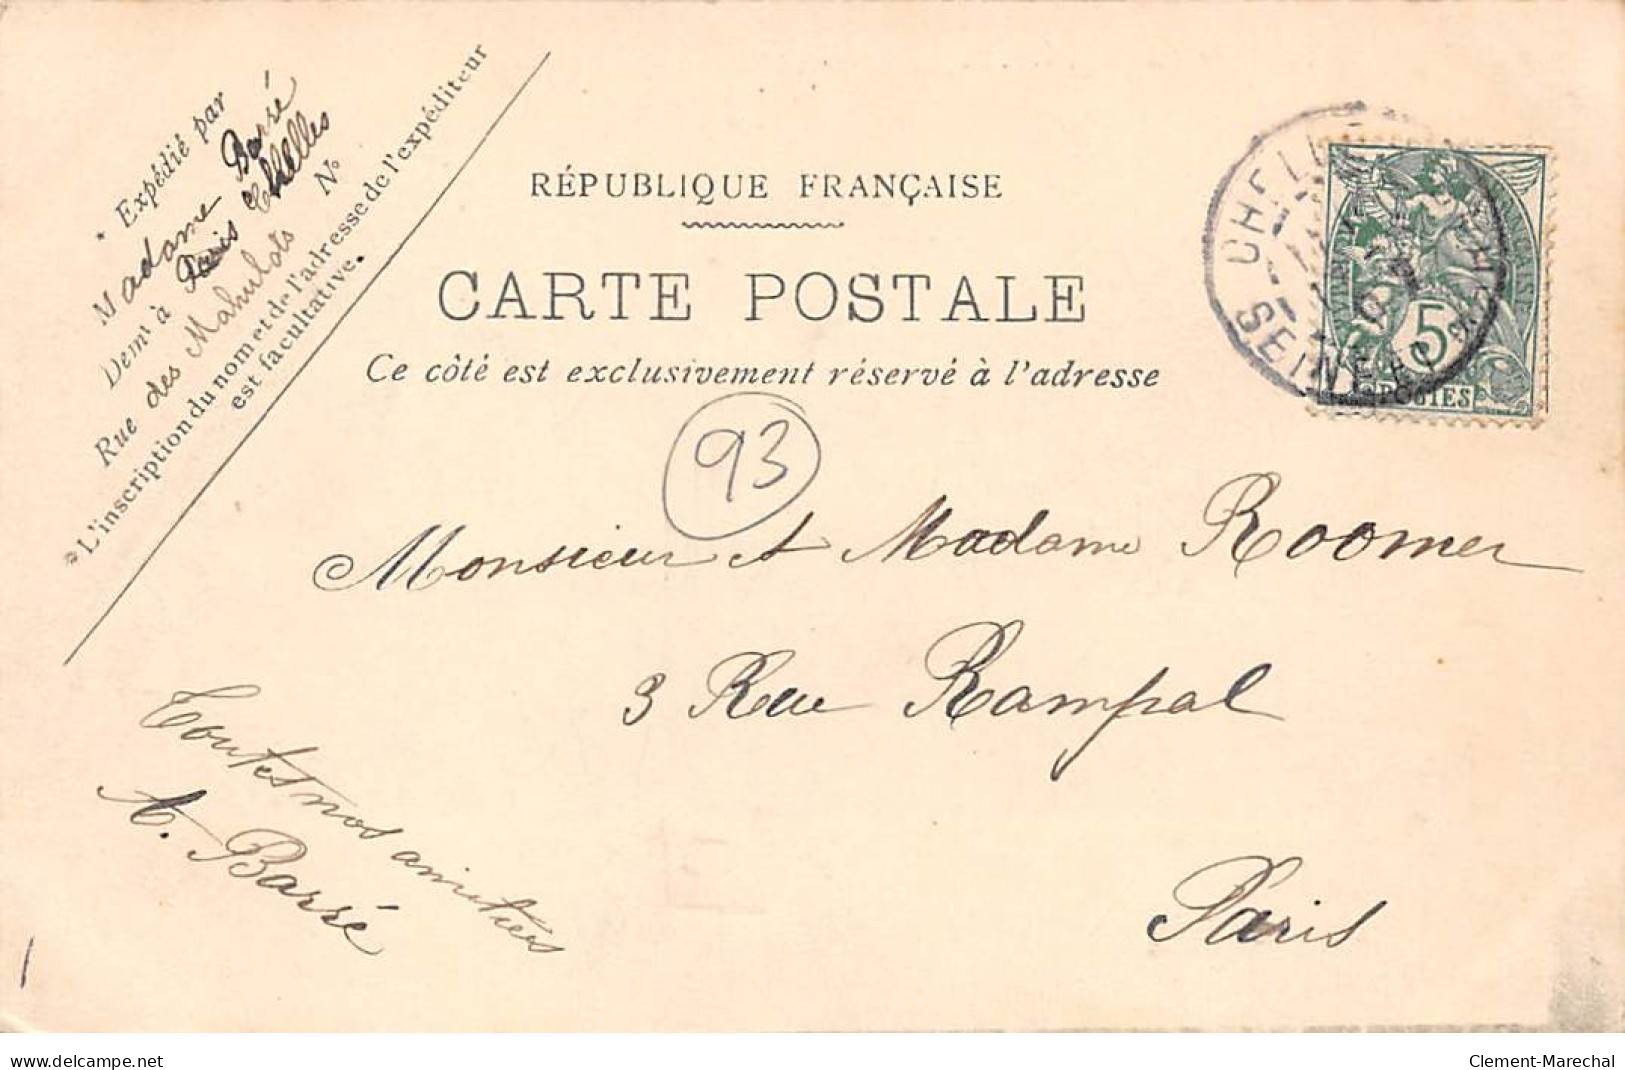 * Expédié par
Madame Barré
Demt à Paris Chelles
Rue des Mahulots No
*L'inscription du nom et de l'adresse de l'expéditeur
est facultative.
RÉPUBLIQUE FRANÇAISE
CARTE POSTALE
Ce côté est exclusivement réservé à l'adresse
CHELL
SEINE
5
POSTES
93
Monsieur et Madame Roomer
3 Rue Rampal
Paris
Toutes nos amitiées
A. Barré
www.delcampe.net
Clement-Marechal